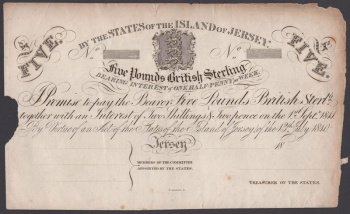 BY THE STATES OF THE ISLAND OF JERSEY.
FIVE. No. No. FIVE.
Five Pounds British Sterling
BEARING INTEREST of ONE HALF-PENNY a WEEK.
I Promise to pay the Bearer Five Pounds British Sterlg.
together with an Interest of Two Shillings & Two pence on the 1st Septr. 1841
By Virtue of an Act of the States of the Island of Jersey, of the 13th July 1840
Jersey 18
MEMBERS OF THE COMMITTEE
APPOINTED BY THE STATES.
TREASURER OF THE STATES.